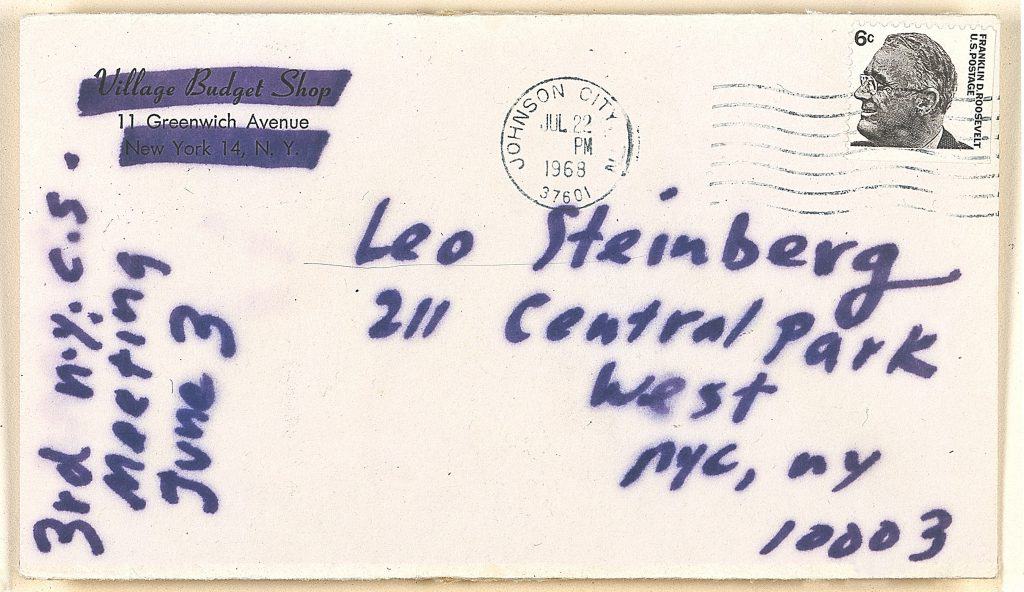 Village Budget Shop
11 Greenwich Avenue
New York 14, N. Y.
JOHNSON CITY,
JUL 22
PM
1968
37601
6c
FRANKLIN D. ROOSEVELT
U.S. POSTAGE
Leo Steinberg
211 Central Park
West
nyc, ny
10003
3rd n.y.c.s.
Meeting
June 3